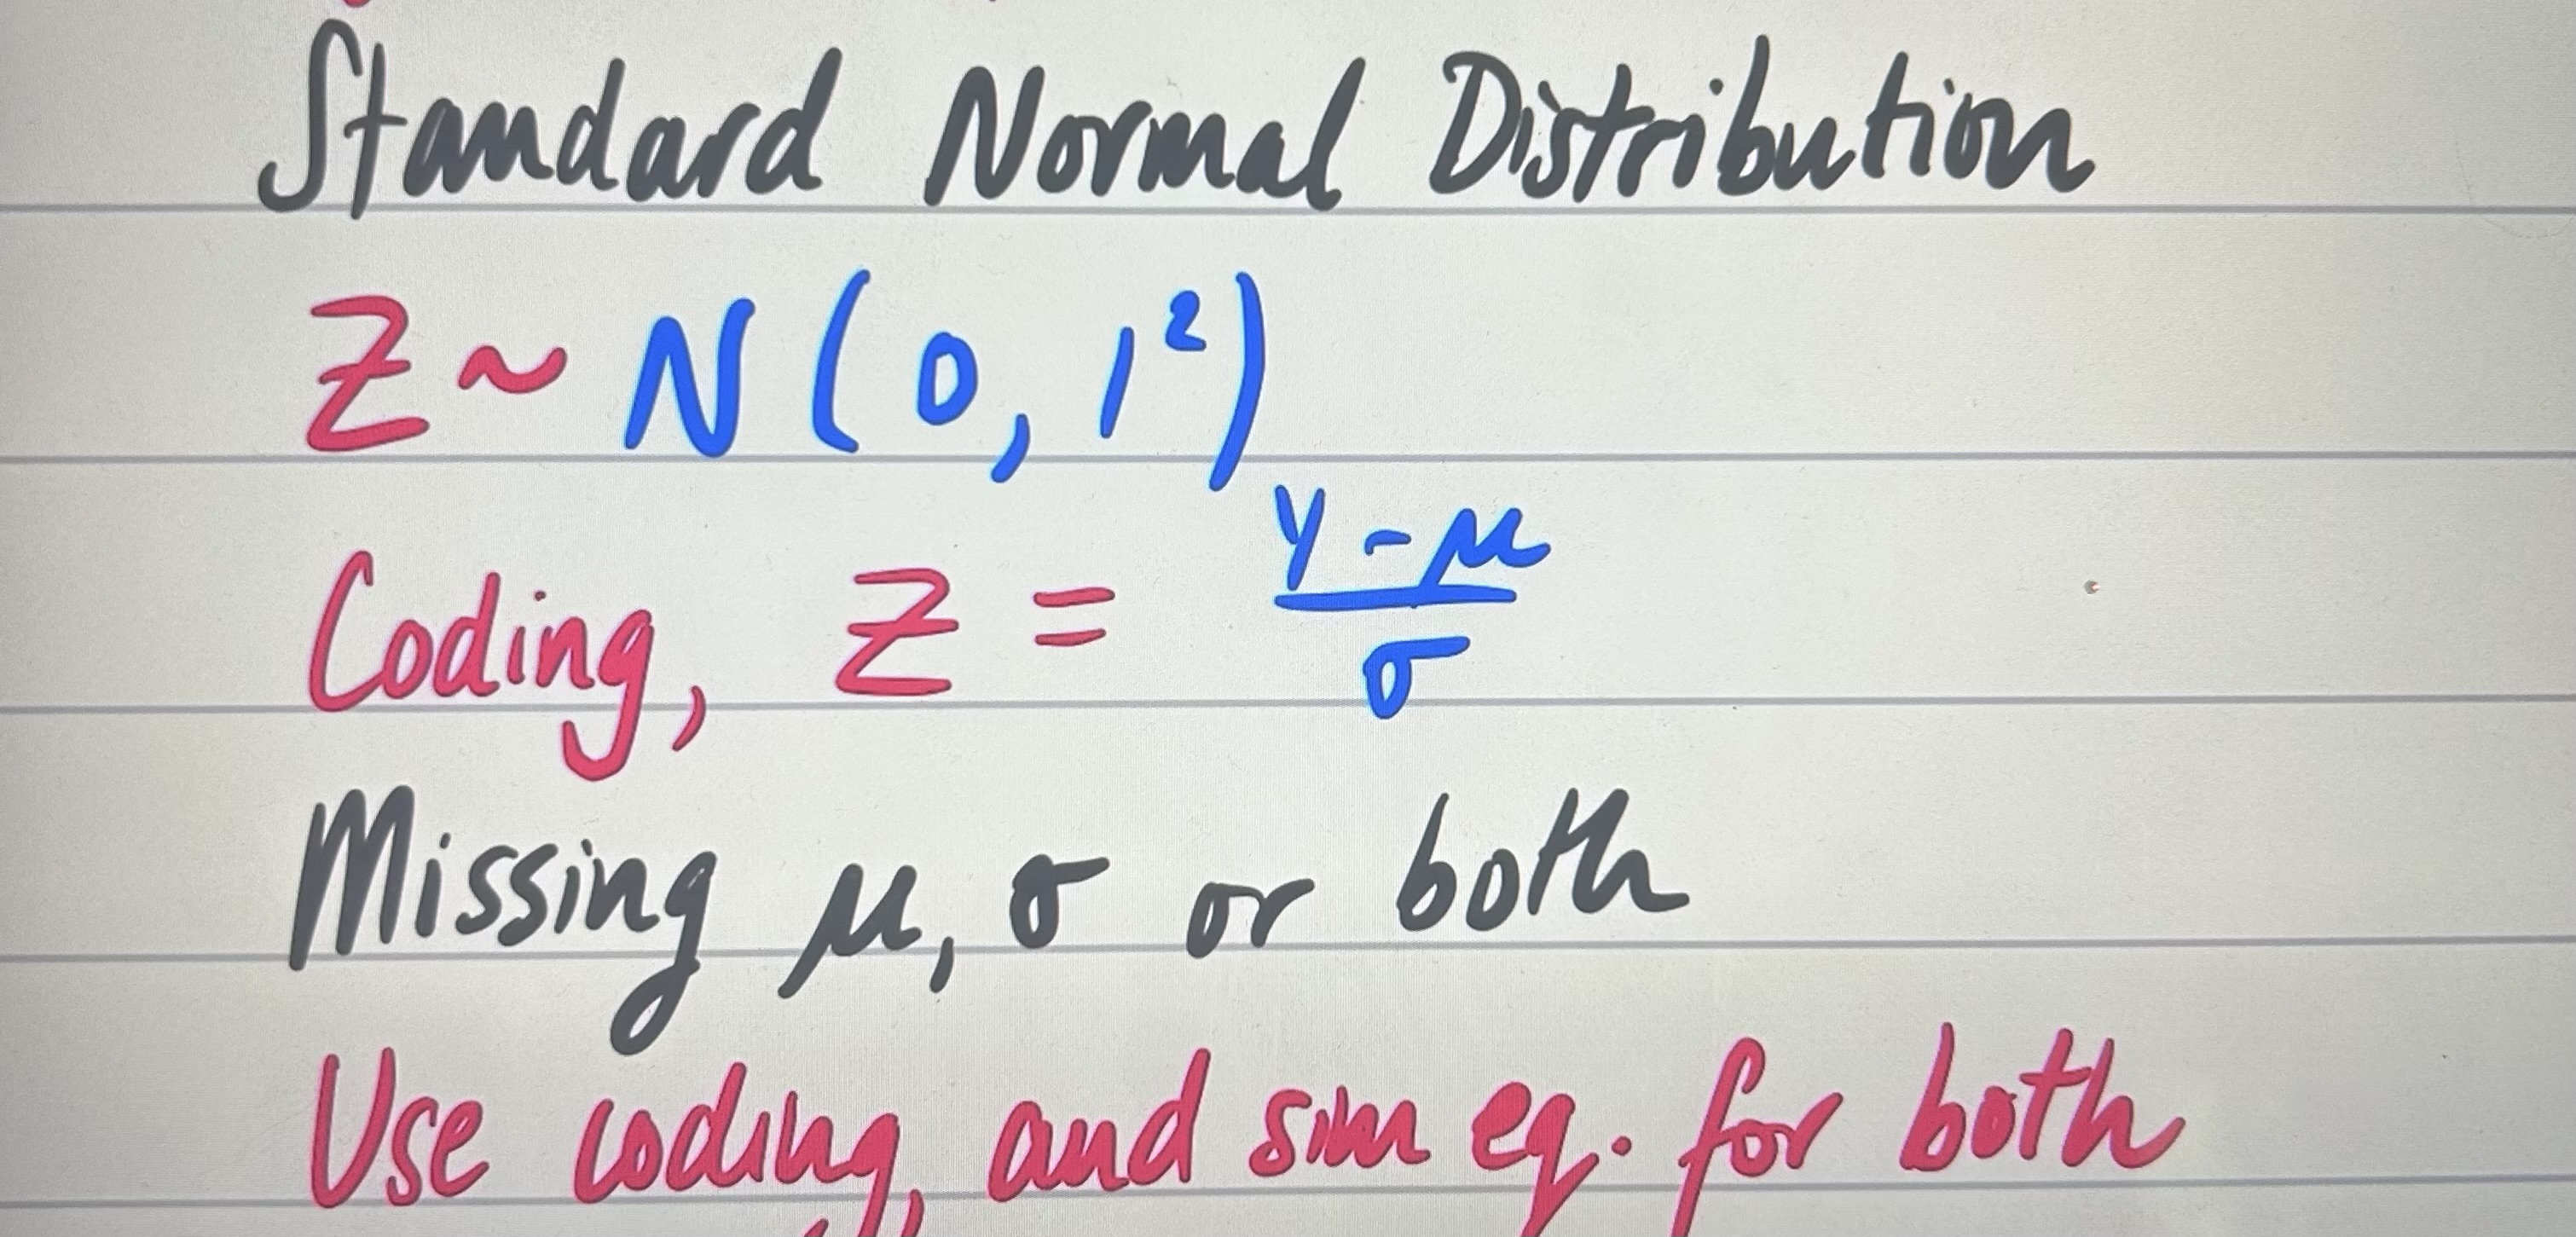 Standard Normal Distribution
Z ~ N(0, 1²)
Coding, Z = Y - μ / σ
Missing μ, σ or both
Use coding, and sim eq. for both